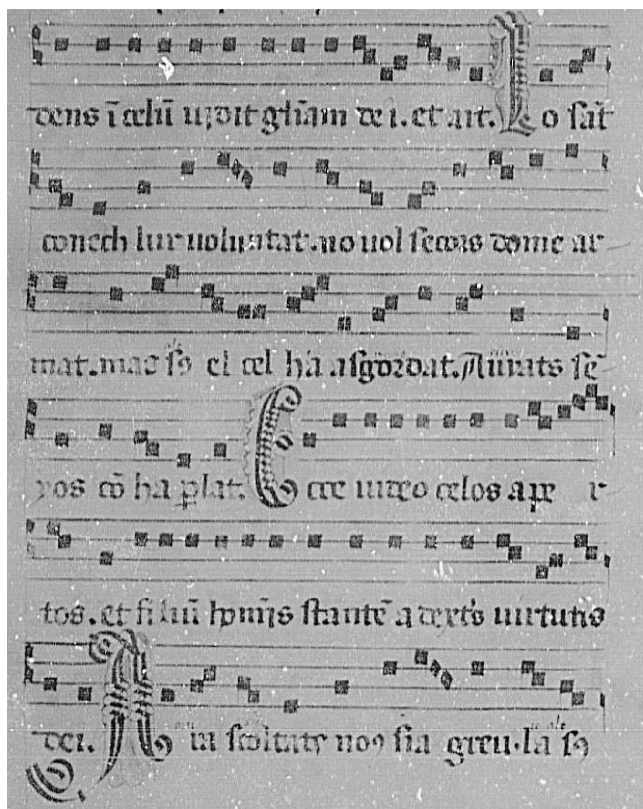 dens ī celū vidit gliam dei. et ait. Lo sāt
conech lur uoluntat. no uol secors dome ar
mat. mas sꝰ el cel ha asgordat. Auiats sē
yos cō ha plat. Ecce uideo celos ape r
tos. et filiū homīs stantē a dextˢ uirtutis
dei. Ara scoltats nos sia greu. la sꝰ